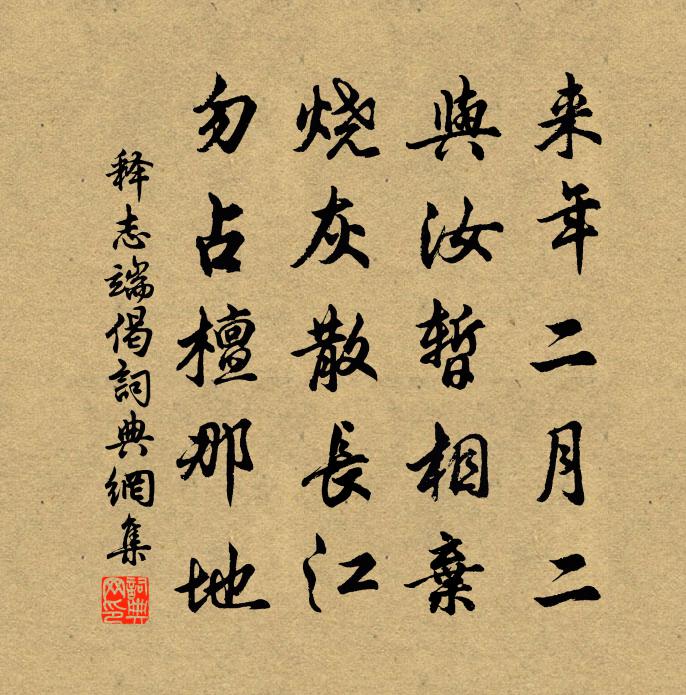 来年二月二
與汝暫相棄
烧灰散長江
勿占檀那地
释志端偈詞典網集
詞典网印